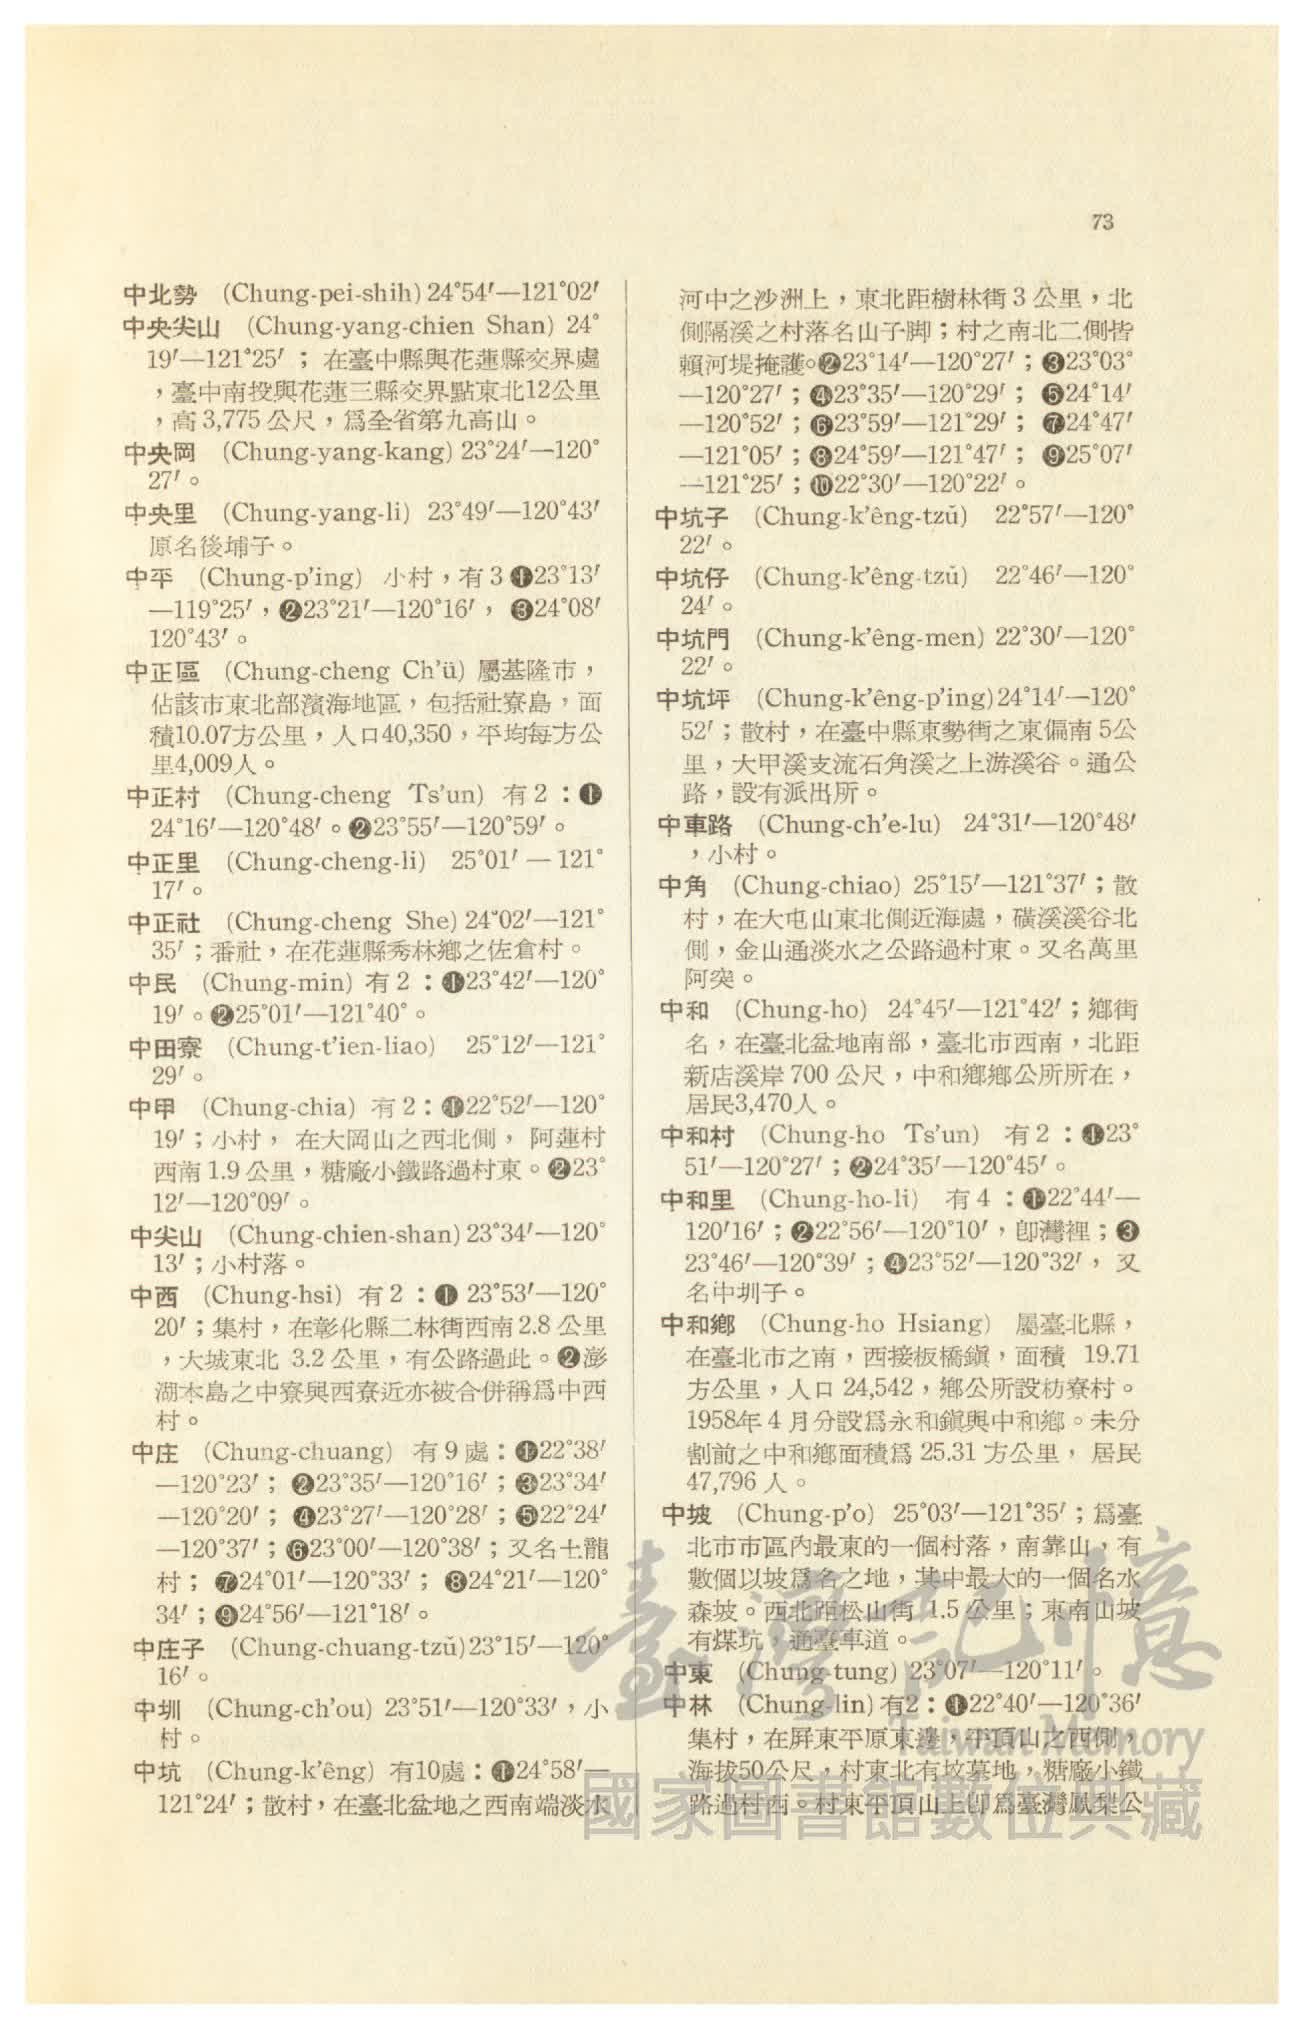 73
中北勢 (Chung-pei-shih) 24°54′—121°02′
中央尖山 (Chung-yang-chien Shan) 24°
19′—121°25′；在臺中縣與花蓮縣交界處
，臺中南投與花蓮三縣交界點東北12公里
，高3,775公尺，爲全省第九高山。
中央岡 (Chung-yang-kang) 23°24′—120°
27′。
中央里 (Chung-yang-li) 23°49′—120°43′
原名後埔子。
中平 (Chung-p'ing) 小村，有3❶23°13′
—119°25′，❷23°21′—120°16′，❸24°08′
120°43′。
中正區 (Chung-cheng Ch'ü) 屬基隆市，
佔該市東北部濱海地區，包括社寮島，面
積10.07方公里，人口40,350，平均每方公
里4,009人。
中正村 (Chung-cheng Ts'un) 有2：❶
24°16′—120°48′。❷23°55′—120°59′。
中正里 (Chung-cheng-li) 25°01′—121°
17′。
中正社 (Chung-cheng She) 24°02′—121°
35′；番社，在花蓮縣秀林鄉之佐倉村。
中民 (Chung-min) 有2：❶23°42′—120°
19′。❷25°01′—121°40°。
中田寮 (Chung-t'ien-liao) 25°12′—121°
29′。
中甲 (Chung-chia) 有2：❶22°52′—120°
19′；小村，在大岡山之西北側，阿蓮村
西南1.9公里，糖廠小鐵路過村東。❷23°
12′—120°09′。
中尖山 (Chung-chien-shan) 23°34′—120°
13′；小村落。
中西 (Chung-hsi) 有2：❶23°53′—120°
20′；集村，在彰化縣二林街西南2.8公里
，大城東北 3.2公里，有公路過此。❷澎
湖本島之中寮與西寮近亦被合併稱爲中西
村。
中庄 (Chung-chuang) 有9處：❶22°38′
—120°23′；❷23°35′—120°16′；❸23°34′
—120°20′；❹23°27′—120°28′；❺22°24′
—120°37′；❻23°00′—120°38′；又名土龍
村；❼24°01′—120°33′；❽24°21′—120°
34′；❾24°56′—121°18′。
中庄子 (Chung-chuang-tzŭ) 23°15′—120°
16′。
中圳 (Chung-ch'ou) 23°51′—120°33′，小
村。
中坑 (Chung-k'êng) 有10處：❶24°58′—
121°24′；散村，在臺北盆地之西南端淡水
河中之沙洲上，東北距樹林街3公里，北
側隔溪之村落名山子脚；村之南北二側皆
賴河堤掩護。❷23°14′—120°27′；❸23°03°
—120°27′；❹23°35′—120°29′；❺24°14′
—120°52′；❻23°59′—121°29′；❼24°47′
—121°05′；❽24°59′—121°47′；❾25°07′
—121°25′；❿22°30′—120°22′。
中坑子 (Chung-k'êng-tzŭ) 22°57′—120°
22′。
中坑仔 (Chung-k'êng-tzŭ) 22°46′—120°
24′。
中坑門 (Chung-k'êng-men) 22°30′—120°
22′。
中坑坪 (Chung-k'êng-p'ing) 24°14′—120°
52′；散村，在臺中縣東勢街之東偏南5公
里，大甲溪支流石角溪之上游溪谷。通公
路，設有派出所。
中車路 (Chung-ch'e-lu) 24°31′—120°48′
，小村。
中角 (Chung-chiao) 25°15′—121°37′；散
村，在大屯山東北側近海處，磺溪溪谷北
側，金山通淡水之公路過村東。又名萬里
阿突。
中和 (Chung-ho) 24°45′—121°42′；鄉街
名，在臺北盆地南部，臺北市西南，北距
新店溪岸700公尺，中和鄉鄉公所所在，
居民3,470人。
中和村 (Chung-ho Ts'un) 有2：❶23°
51′—120°27′；❷24°35′—120°45′。
中和里 (Chung-ho-li) 有4：❶22°44′—
120′16′；❷22°56′—120°10′，卽灣裡；❸
23°46′—120°39′；❹23°52′—120°32′，又
名中圳子。
中和鄉 (Chung-ho Hsiang) 屬臺北縣，
在臺北市之南，西接板橋鎭，面積 19.71
方公里，人口24,542，鄉公所設枋寮村。
1958年4月分設爲永和鎭與中和鄉。未分
割前之中和鄉面積爲25.31方公里，居民
47,796人。
中坡 (Chung-p'o) 25°03′—121°35′；爲臺
北市市區內最東的一個村落，南靠山，有
數個以坡爲名之地，其中最大的一個名水
森坡。西北距松山街1.5公里；東南山坡
有煤坑，通臺車道。
中東 (Chung-tung) 23°07′—120°11′。
中林 (Chung-lin) 有2：❶22°40′—120°36′
集村，在屏東平原東邊，平頂山之西側，
海拔50公尺，村東北有墳墓地，糖廠小鐵
路過村西。村東平頂山上卽爲臺灣鳳梨公
臺灣記憶
Taiwan Memory
國家圖書館數位典藏